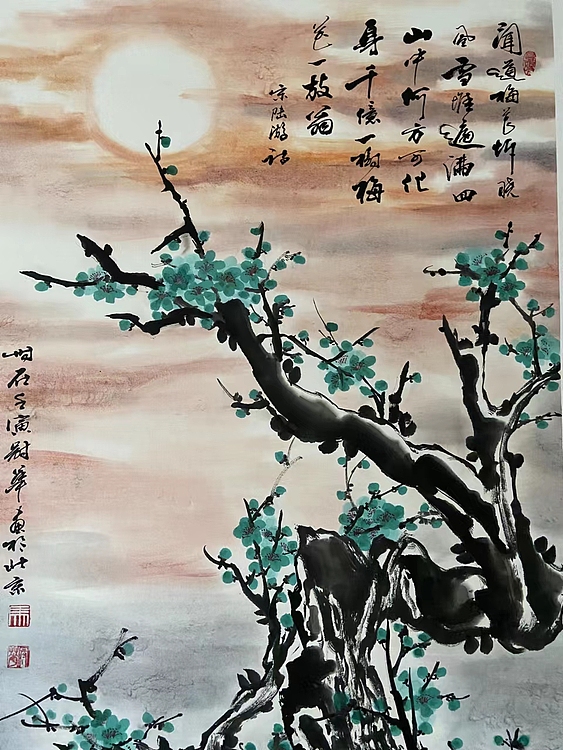 聞道梅花坼晓
風雪堆遍滿四
山中何方可化
身千億一樹梅
花一放翁
宋陸游詩
石壬寅尉華畫於北京